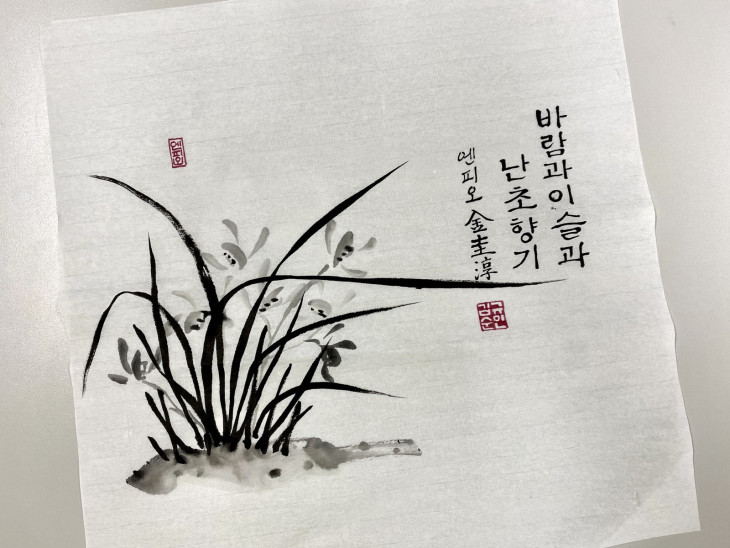 바람과이슬과
난초향기
엔피오 金圭淳
김규
순인
엔피오